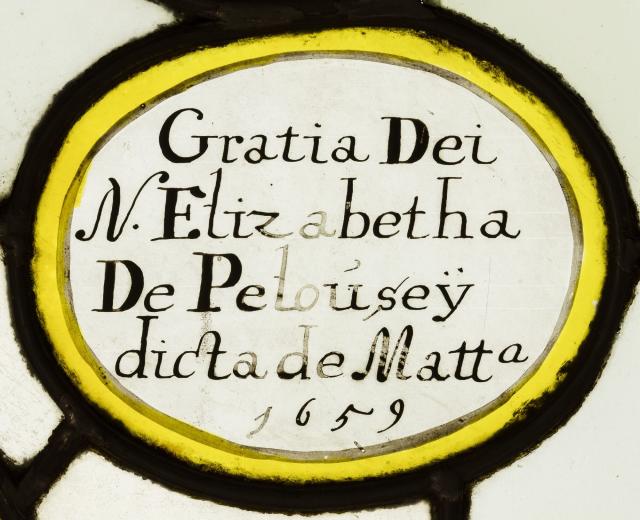 Gratia Dei
N. Elizabetha
De Peloúseÿ
dicta de Matt^a
1659